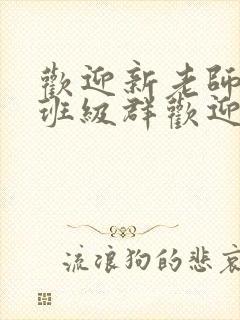 歡迎新老師
班級群歡迎
流浪狗的悲哀